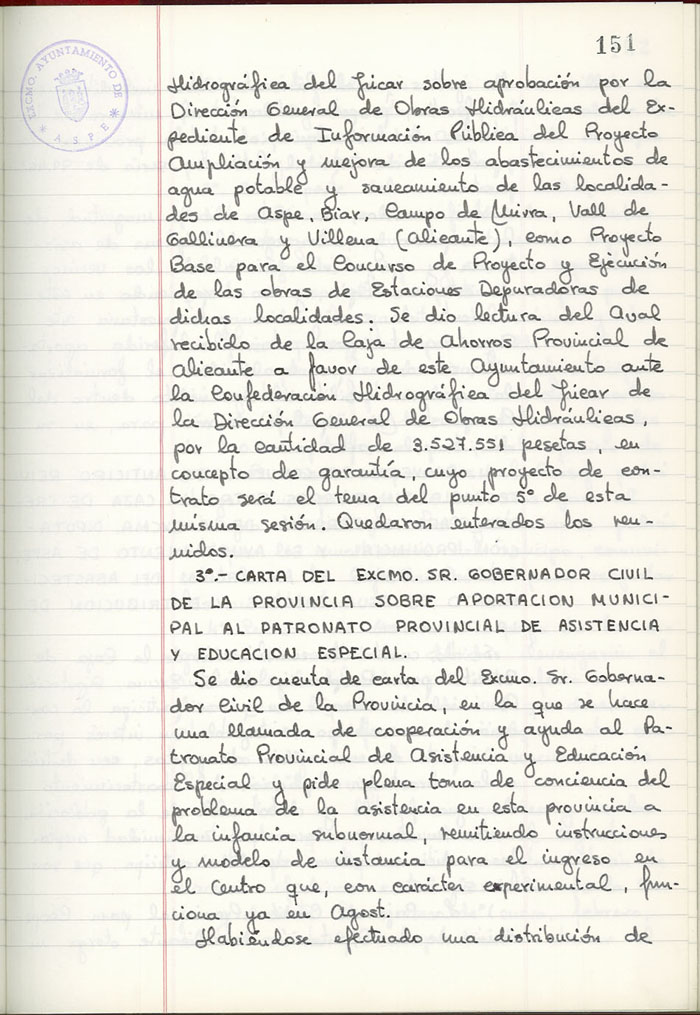 151
EXCMO. AYUNTAMIENTO DE
* A.S.P.E *
Hidrográfica del Júcar sobre aprobación por la
Dirección General de Obras Hidráulicas del Ex-
pediente de Información Pública del Proyecto
Ampliación y mejora de los abastecimientos de
agua potable y saneamiento de las localida-
des de Aspe, Biar, Campo de Mirra, Vall de
Gallinera y Villena (Alicante), como Proyecto
Base para el Concurso de Proyecto y Ejecución
de las obras de Estaciones Depuradoras de
dichas localidades. Se dio lectura del Aval
recibido de la Caja de Ahorros Provincial de
Alicante a favor de este Ayuntamiento ante
la Confederación Hidrográfica del Júcar de
la Dirección General de Obras Hidráulicas,
por la cantidad de 3.527.551 pesetas, en
concepto de garantía, cuyo proyecto de con-
trato será el tema del punto 5º de esta
misma sesión. Quedaron enterados los reu-
nidos.
3º.- CARTA DEL EXCMO. SR. GOBERNADOR CIVIL
DE LA PROVINCIA SOBRE APORTACION MUNICI-
PAL AL PATRONATO PROVINCIAL DE ASISTENCIA
Y EDUCACION ESPECIAL.
Se dio cuenta de carta del Excmo. Sr. Goberna-
dor Civil de la Provincia, en la que se hace
una llamada de cooperación y ayuda al Pa-
tronato Provincial de Asistencia y Educación
Especial y pide plena toma de conciencia del
problema de la asistencia en esta provincia a
la infancia subnormal, remitiendo instrucciones
y modelo de instancia para el ingreso en
el Centro que, con carácter experimental, fun-
ciona ya en Agost.
Habiéndose efectuado una distribución de